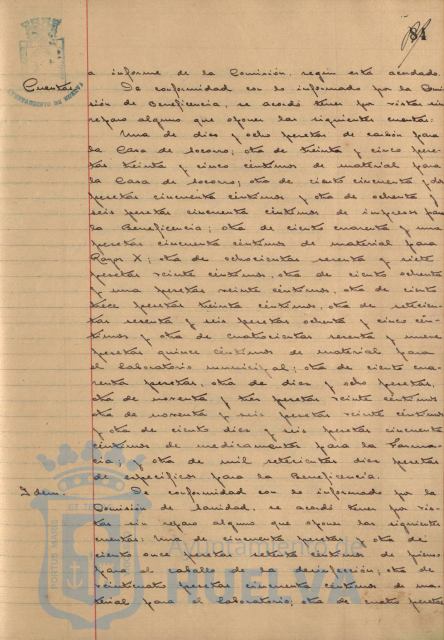 84
a informe de la Comisión, según está acordado.
Cuentas
De conformidad con lo informado por la Comi
sión de Beneficencia, se acordó tener por vistas sin
reparo alguno que oponer las siguientes cuentas:
Una de diez y ocho pesetas de carbón para
la Casa de Socorro; otra de treinta y cinco pese
tas treinta y cinco céntimos de material para
la Casa de Socorro; otra de ciento cincuenta y dos
pesetas cincuenta céntimos y otra de ochenta y
seis pesetas cincuenta céntimos de impresos para
la Beneficencia; otra de ciento cuarenta y una
pesetas cincuenta céntimos de material para
Rayos X; otra de ochocientas sesenta y siete
pesetas veinte céntimos, otra de ciento ochenta
y una pesetas veinte céntimos, otra de ciento
trece pesetas treinta céntimos, otra de setecien
tas sesenta y seis pesetas ochenta y cinco cén
timos y otra de cuatrocientas sesenta y nueve
pesetas quince céntimos de material para
el laboratorio municipal; otra de ciento cua
renta pesetas, otra de diez y ocho pesetas,
otra de noventa y tres pesetas veinte céntimos
otra de noventa y seis pesetas veinte céntimos
y otra de ciento diez y seis pesetas cincuenta
céntimos de medicamentos para la Farma
cia; y otra de mil setecientas diez pesetas
de específicos para la Beneficencia.
Idem.
De conformidad con lo informado por la
Comisión de Sanidad, se acordó tener por vis
tas sin reparo alguno que oponer las siguientes
cuentas: Una de cincuenta pesetas y otra de
ciento once pesetas setenta céntimos de pienso
para el caballo de la desinfección; otra de
veinticuatro pesetas cincuenta céntimos de ma
terial para el laboratorio; otra de cuatro pesetas
Ayuntamiento de
HUELVA
PORTUS MARIS